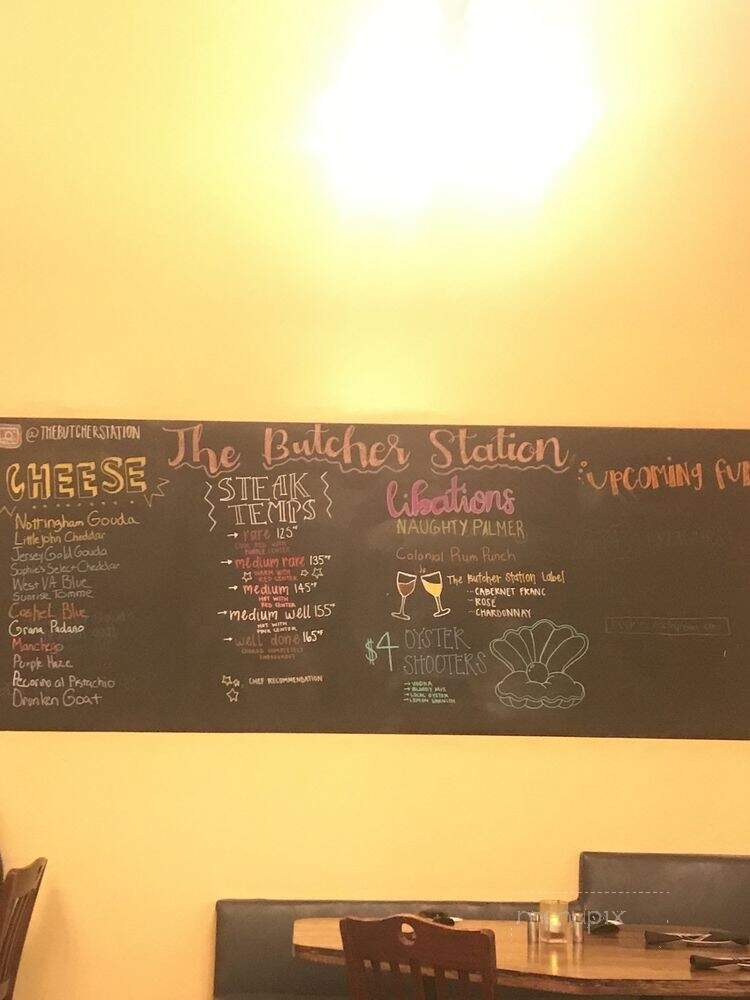 @THEBUTCHERSTATION
The Butcher Station
CHEESE
Nottingham Gouda
Little John Cheddar
Jersey Gold Gouda
Sophie's Select Cheddar
West VA Blue
Sunrise Tomme
Cashel Blue
Grana Padano
Manchego
Purple Haze
Pecorino al Pistachio
Drunken Goat
STEAK
TEMPS
→ rare 125°
COOL RED WITH
PURPLE CENTER
→ medium rare 135°
WARM WITH
RED CENTER
→ medium 145°
HOT WITH
RED CENTER
→ medium well 155°
HOT WITH
PINK CENTER
→ well done 165°
COOKED COMPLETELY
THROUGHOUT
CHEF RECOMMENDATION
libations
NAUGHTY PALMER
Colonial Rum Punch
The Butcher Station Label
- CABERNET FRANC
- ROSE
- CHARDONNAY
$4 OYSTER
SHOOTERS
→ VODKA
→ BLOODY MIX
→ LOCAL OYSTER
→ LEMON GARNISH
UPCOMING FU
menupix